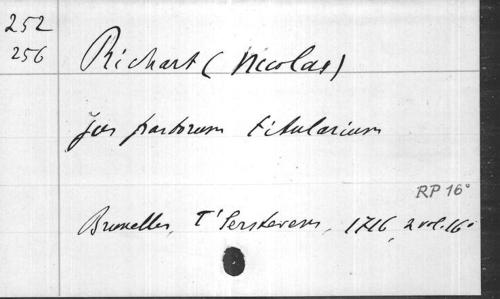 252
256
Richart (Nicolas)
Jus pastorum titularium
RP 16°
Bruxelles, T'Serstevens, 1716, 2 vol. 16°